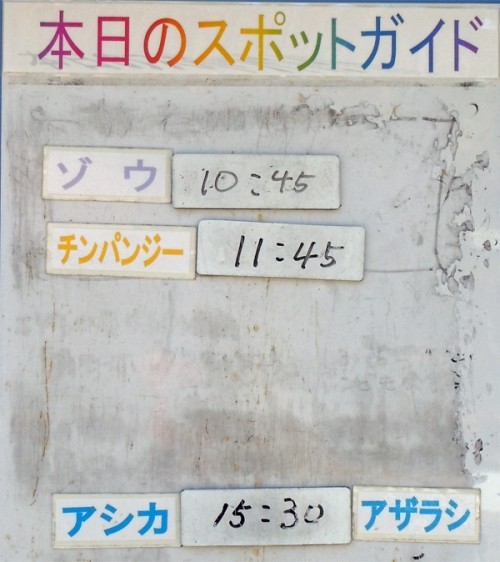 本日のスポットガイド
ゾウ 10:45
チンパンジー 11:45
アシカ 15:30 アザラシ